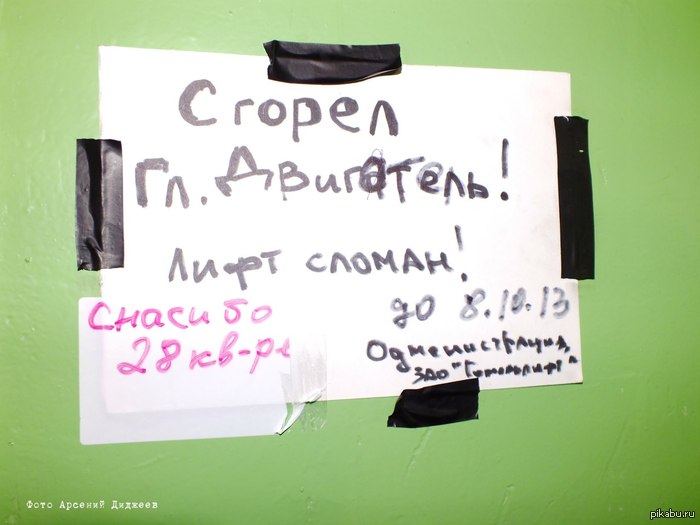 Сгорел
Гл. Двигатель!
Лифт сломан!
до 8.10.13
Спасибо
28 кв-ре
Одменистрация,
ЗАО "Гомельлифт"
Фото Арсений Диджеев
pikabu.ru